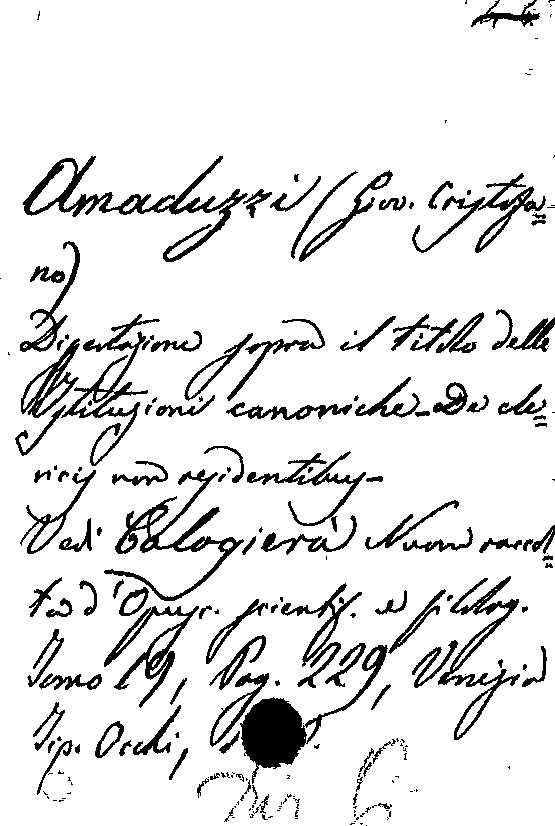 Amaduzzi (Giov. Cristofa=
no)
Dissertazione sopra il titolo delle
Istituzioni canoniche - De cle=
ricis non residentibus -
Vedi Calogierà Nuova raccol=
ta d'Opusc. scientif. e filolog.
Tomo 19, Pag. 229, Venezia
Tip. Occhi,
Dir